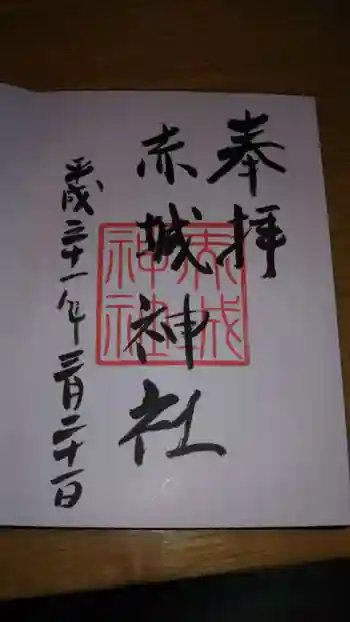 奉拝
赤城神社
平成三十一年三月二十一日
赤城
神社